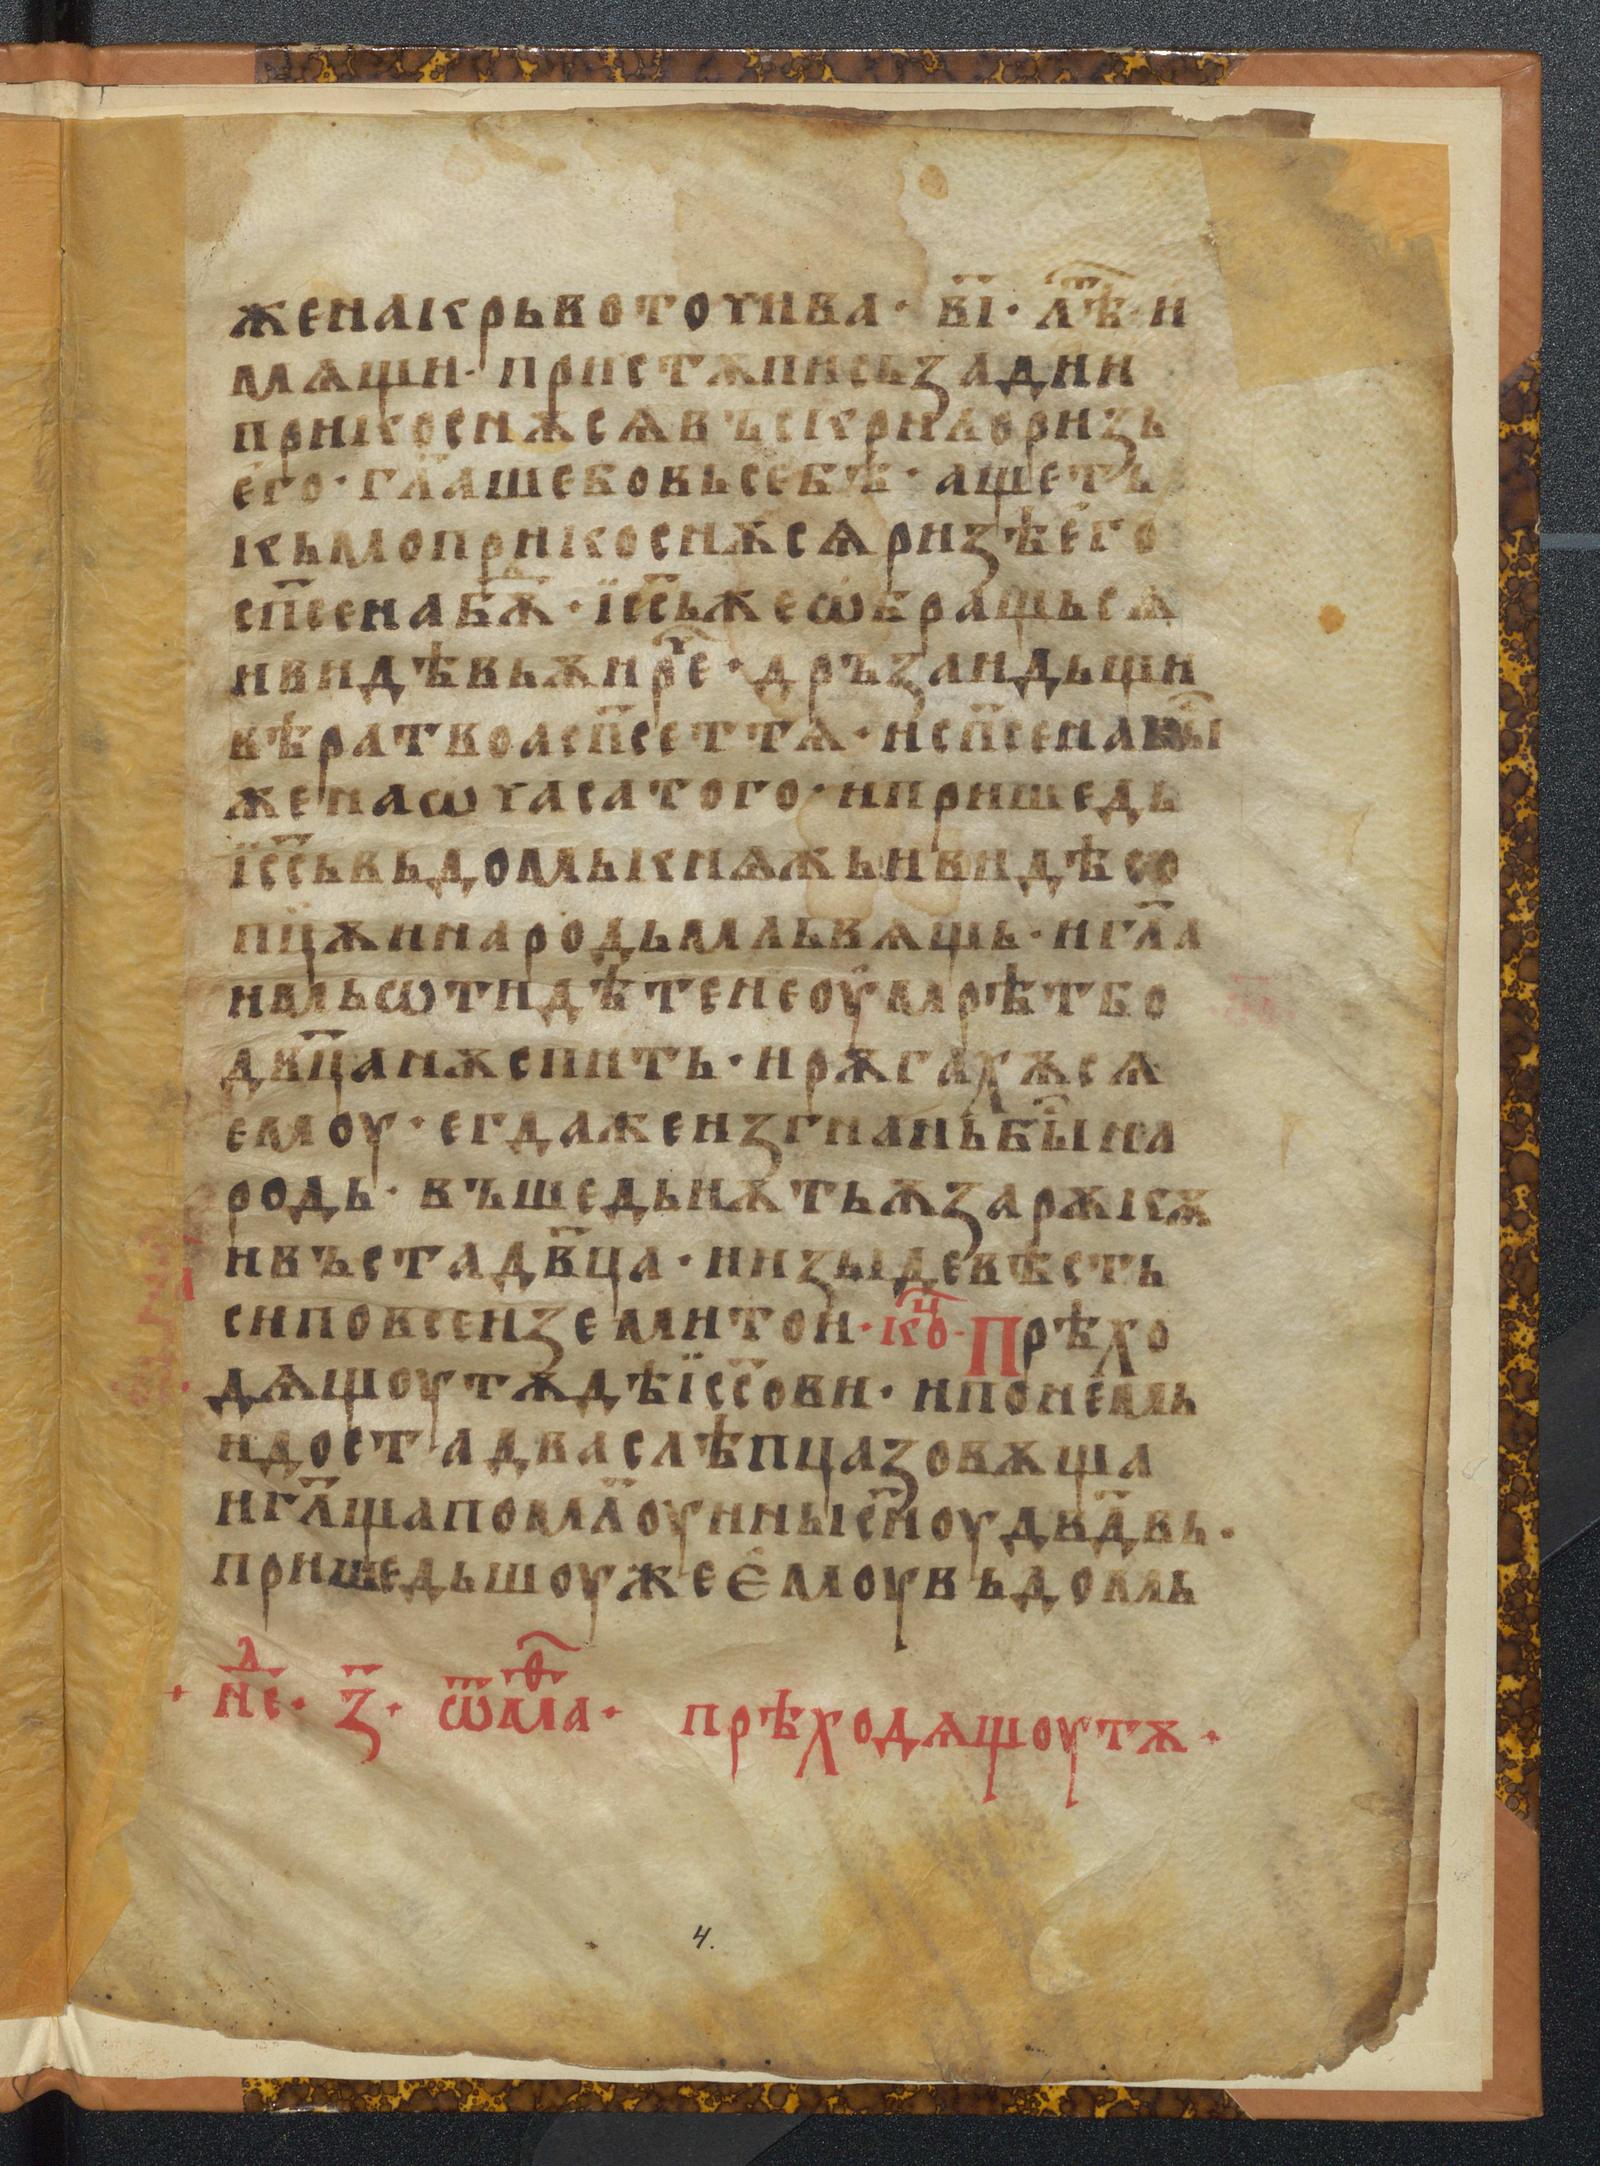 женакрьвоточива · в҃і · лⷮѣ · и
мѧщи · пристѫписьзади и
прикоснѫсѧвъскрилоризъ
его · гл҃ашебовьсебѣ · ащетъ
кьмоприкоснѫсѧризѣего
сп҃сенабѫⷣ · їс҃сьжеѡбращьсѧ
ивидѣвьѫирⷱе · дръзаидьщи
вѣратвоасп҃сеттѧ · исп҃сенабыⷭ
женаѡчасатого · ипришедь
їс҃сьвьдомькнѧжьивидѣсо
пцѫинародьмльвѧщь · игл҃а
имьѡтидѣтенеоумрѣтбо
дв҃цанѫспить · ирѫгахѫсѧ
емоу · егдажеизгнаньбыⷭна
родь · въшедьиѫтьѫзарѫкѫ
ивъстадв҃ца · иизыдевѣсть
сиповсеиземитои · коⷰ · Прѣхо
дѧщоутѫдѣїс҃сови · ипонемь
идостадваслѣпцазовѫща
игл҃щапомл҃оуиныс҃ноудв҃двь ·
пришедьшоужеемоувьдомь
· неⷣ · з҃ · ѿмаⷴ · прѣходѧщоутѫ ·
4.